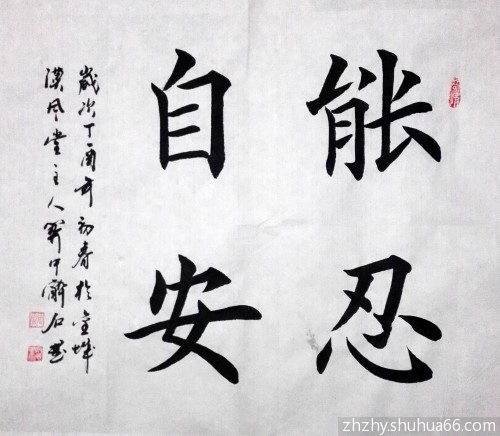 能忍
自安
歲次丁酉年初春於金城
漢風堂主人 中 石書
zhzhy.shuhua66.com